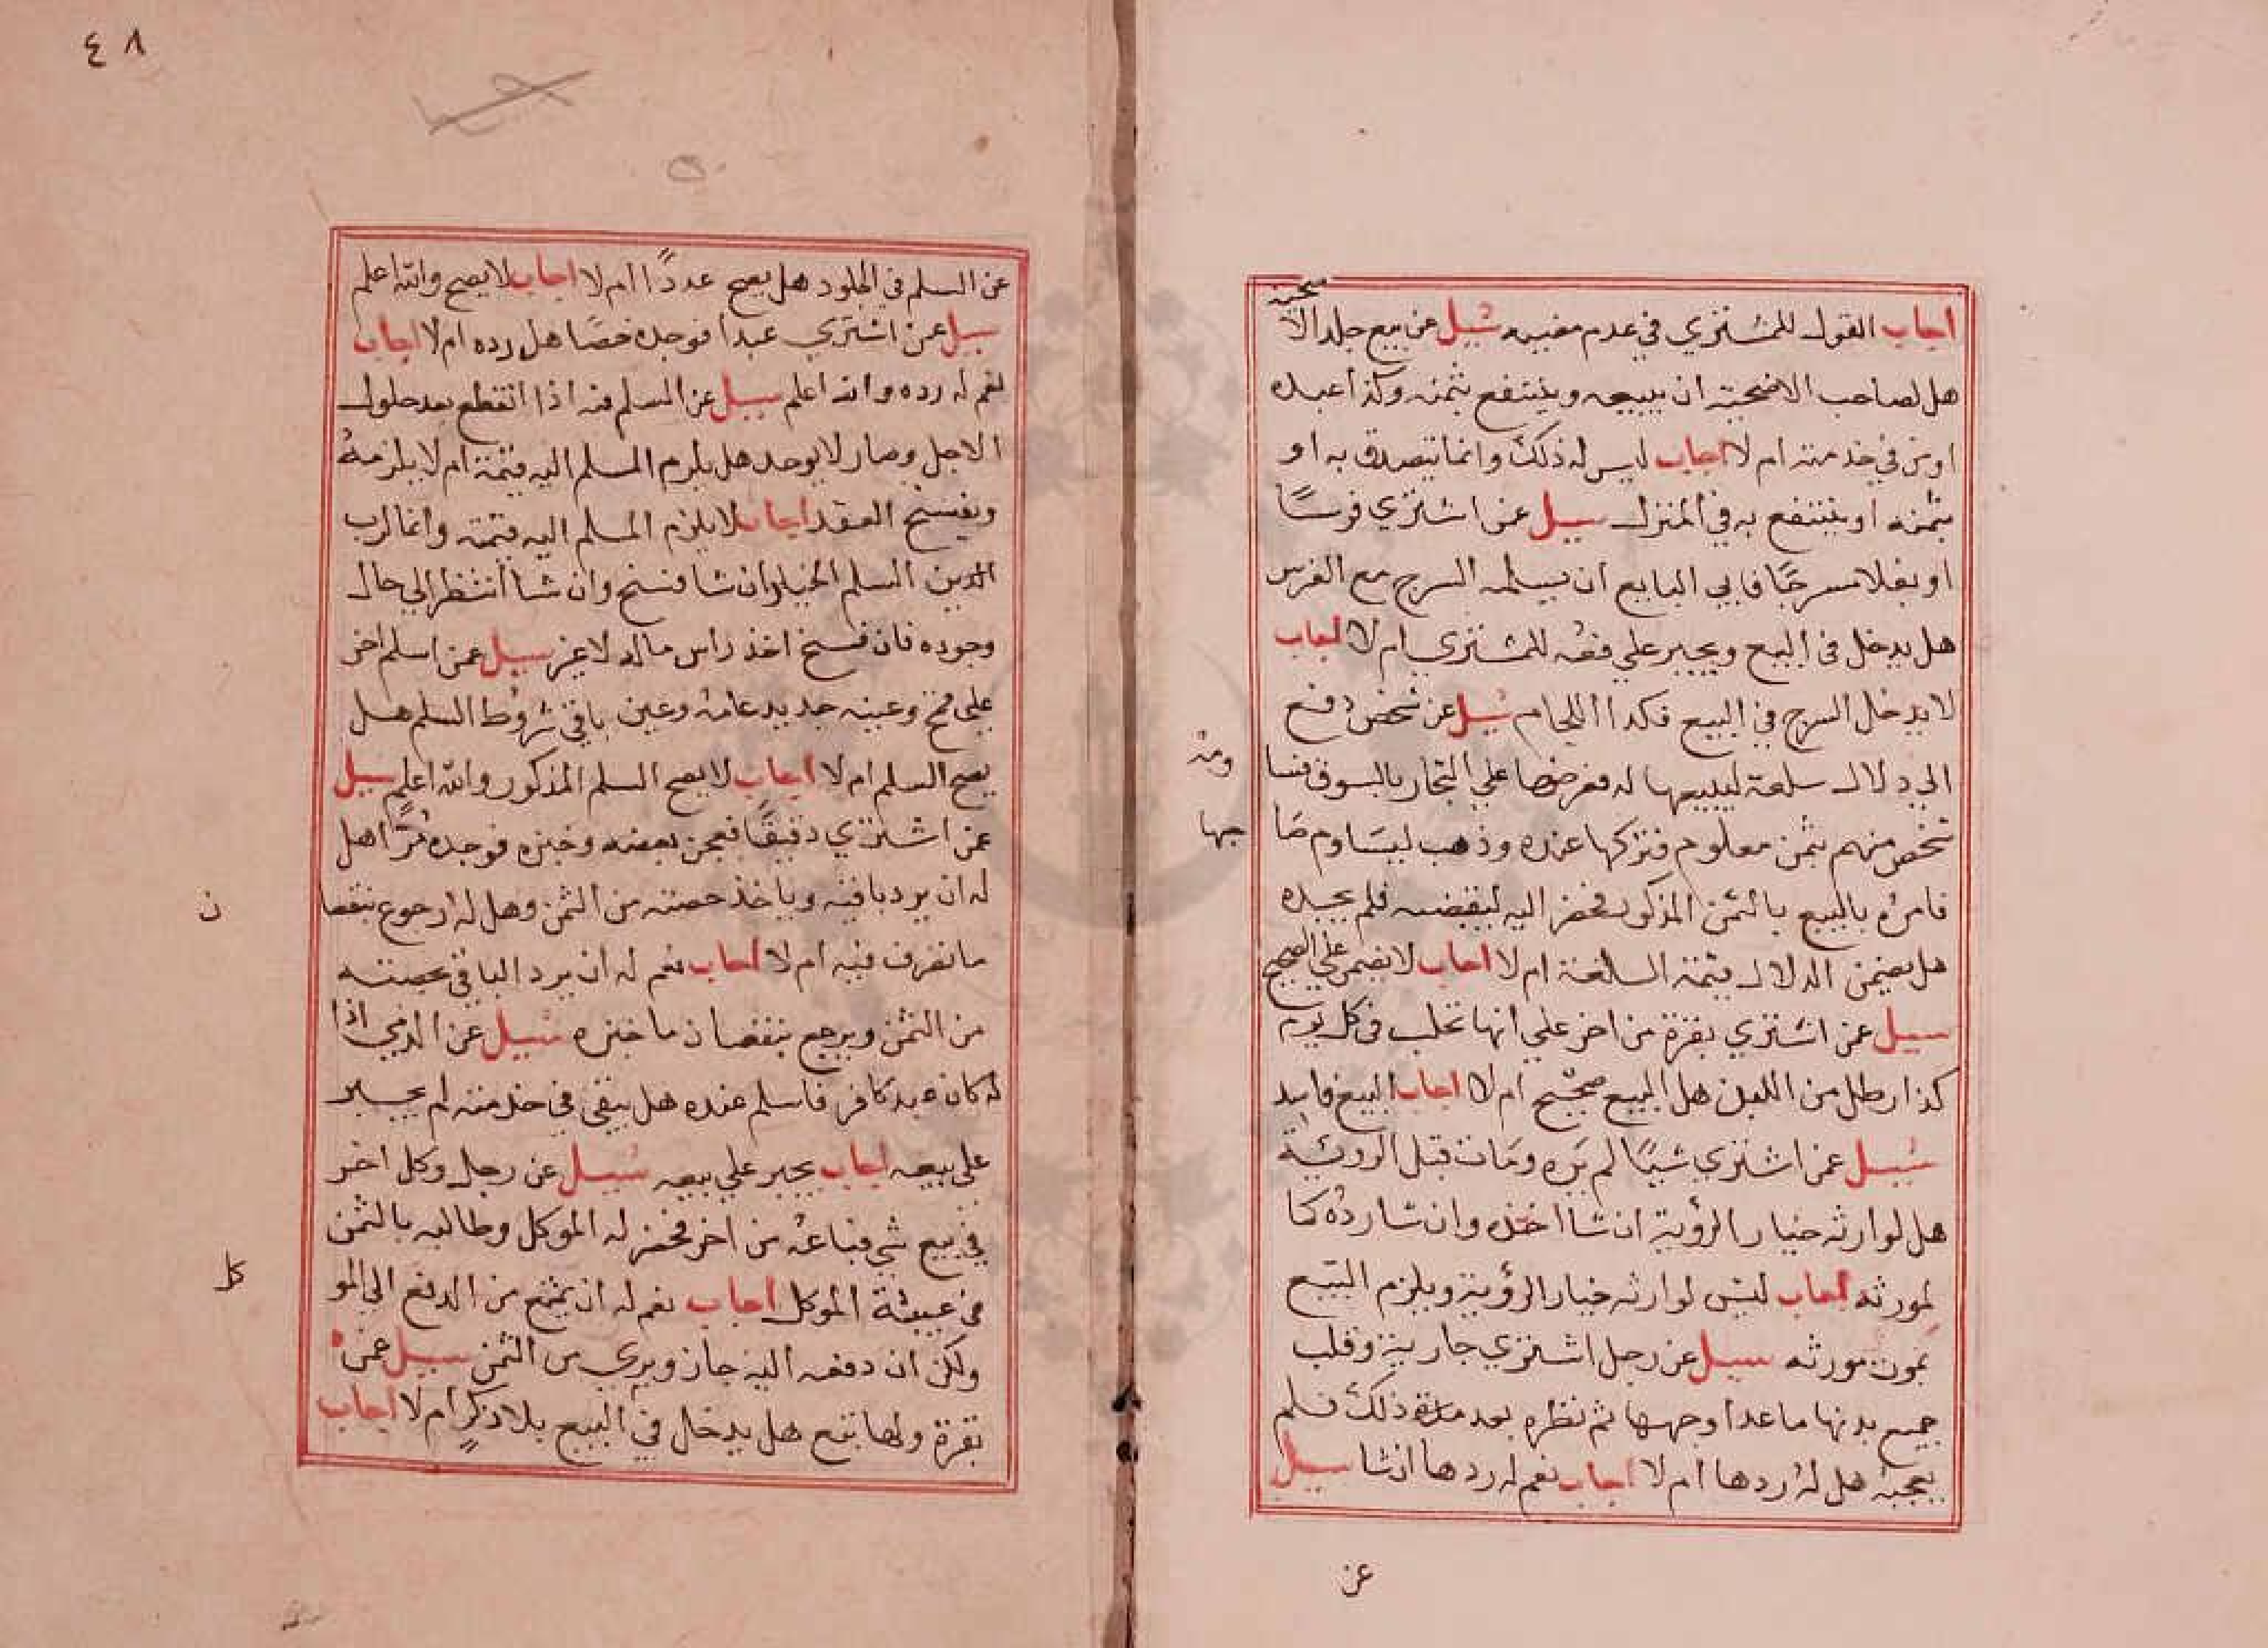 اجاب القول للمشتري في عدم مغيبه سيل عن بيع جلد الا ضحية
هل لصاحب الاضحية ان يبيعه وينتفع بثمنه وكذا عبده
او من في خدمته ام لا اجاب ليس له ذلك وانما يتصدق به او
بثمنه او ينتفع به في المنزل سيل عمن اشتري فرسًا
او بغلا مسرجًا فابي البايع ان يسلمه السرج مع الفرس
هل يدخل في البيع ويجبر علي دفعه للمشتري ام لا اجاب
لا يدخل السرج في البيع فكدا اللجام سيل عن شخص دفع
الي دلال سلعة ليبيعها له فعرضها علي التجار بالسوق فسا ومه
شخص منهم بثمن معلوم فتركها عنده وذهب ليشاوم صا حبها
فامره بالبيع بالثمن المذكور فحضر اليه ليقبضه فلم يجده
هل يضمن الدلال قيمة السلعة ام لا اجاب لا يضمن علي الصحيح
سيل عمن اشتري بقرة من اخر علي انها تحلب في كل يوم
كذا رطل من اللبن هل البيع صحيح ام لا اجاب البيع فاسد
سيل عمن اشتري شيًا لم يره ومات قبل الروئية
هل لوارثه خيار الرؤية ان شا اخذه وان شا رده كما
لمورثه اجاب ليس لوارثه خيار الرؤية ويلزم البيع
بموت مورثه سيل عن رجل اشتري جارية وقلب
جميع بدنها ما عدا وجهها ثم نظره بعد مدة ذلك فلم
يعجبه هل له ردها ام لا اجاب نعم له ردها ان شا سيل
عن
٤٨
عن السلم في الجلود هل يصح عددًا ام لا اجاب لا يصح والله اعلم
سيل عمن اشتري عبدا فوجده خصًا هل رده ام لا اجاب
نعم له رده والله اعلم سيل عن المسلم فيه اذا انقطع بعد حلول
الاجل وصار لا يوجد هل يلزم المسلم اليه قيمته ام لا يلزمه
ويفسخ العقد اجاب لا يلزم المسلم اليه قيمته وانما لرب
الدين المسلم الخيار ان شا فسخ وان شا انتظر الي حال
وجوده فان فسخ اخذ راس ماله لا غير سيل عمن اسلم اخر
علي قمح وعينه جديد عامه وعين باقي شروط السلم هل
يصح السلم ام لا اجاب لا يصح السلم المذكور والله اعلم سيل
عمن اشتري دقيقًا فعجن بعضه وخبزه فوجده مرًا هل
له ان يرد باقيه وياخذ حصته من الثمن وهل له رجوع بنقصا ن
ما تصرف فيه ام لا اجاب نعم له ان يرد الباقي بحصته
من الثمن ويرجع بنقصان ما خبزه سيل عن الذمي اذا
له كان عبد كافر فاسلم عنده هل يبقي في خدمته ام يجبر
علي بيعه اجاب يجبر علي بيعه سيل عن رجل وكل اخر
في بيع شي فباعه من اخر فحضر له الموكل وطالبه بالثمن
في غيبة الموكل اجاب نعم له ان يمتنع من الدفع الي المو كل
ولكن ان دفعه اليه جاز ويبري من الثمن سيل عمن
بقرة ولها تبع هل يدخل في البيع بلا ذكرٍ ام لا اجاب